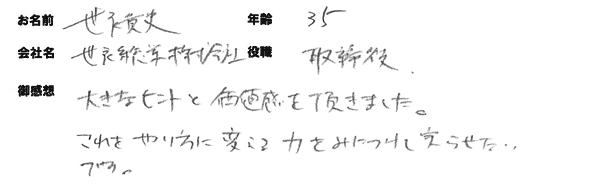 お名前 世良貴史 年齢 35
会社名 世良総業株式会社 役職 取締役
御感想 大きなヒントと価値感を頂きました。
これをやり方に変える力をみにつけし実らせた..
です。